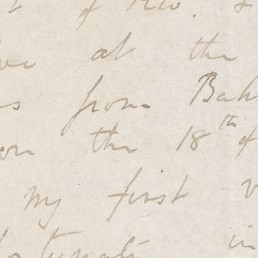 of Nov. &
at the
from Bak
on the 18th of
my first v
in